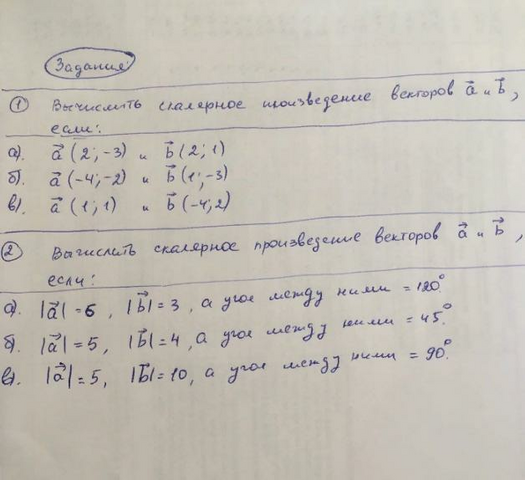 Задание:
① Вычислить скалярное произведение векторов a⃗ и b⃗,
если:
а). a⃗ (2; -3) и b⃗ (2; 1)
б). a⃗ (-4; -2) и b⃗ (1; -3)
в). a⃗ (1; 1) и b⃗ (-4; 2)
② Вычислить скалярное произведение векторов a⃗ и b⃗,
если:
а). |a⃗| = 6, |b⃗| = 3, а угол между ними = 120°
б). |a⃗| = 5, |b⃗| = 4, а угол между ними = 45°.
в). |a⃗| = 5, |b⃗| = 10, а угол между ними = 90°.